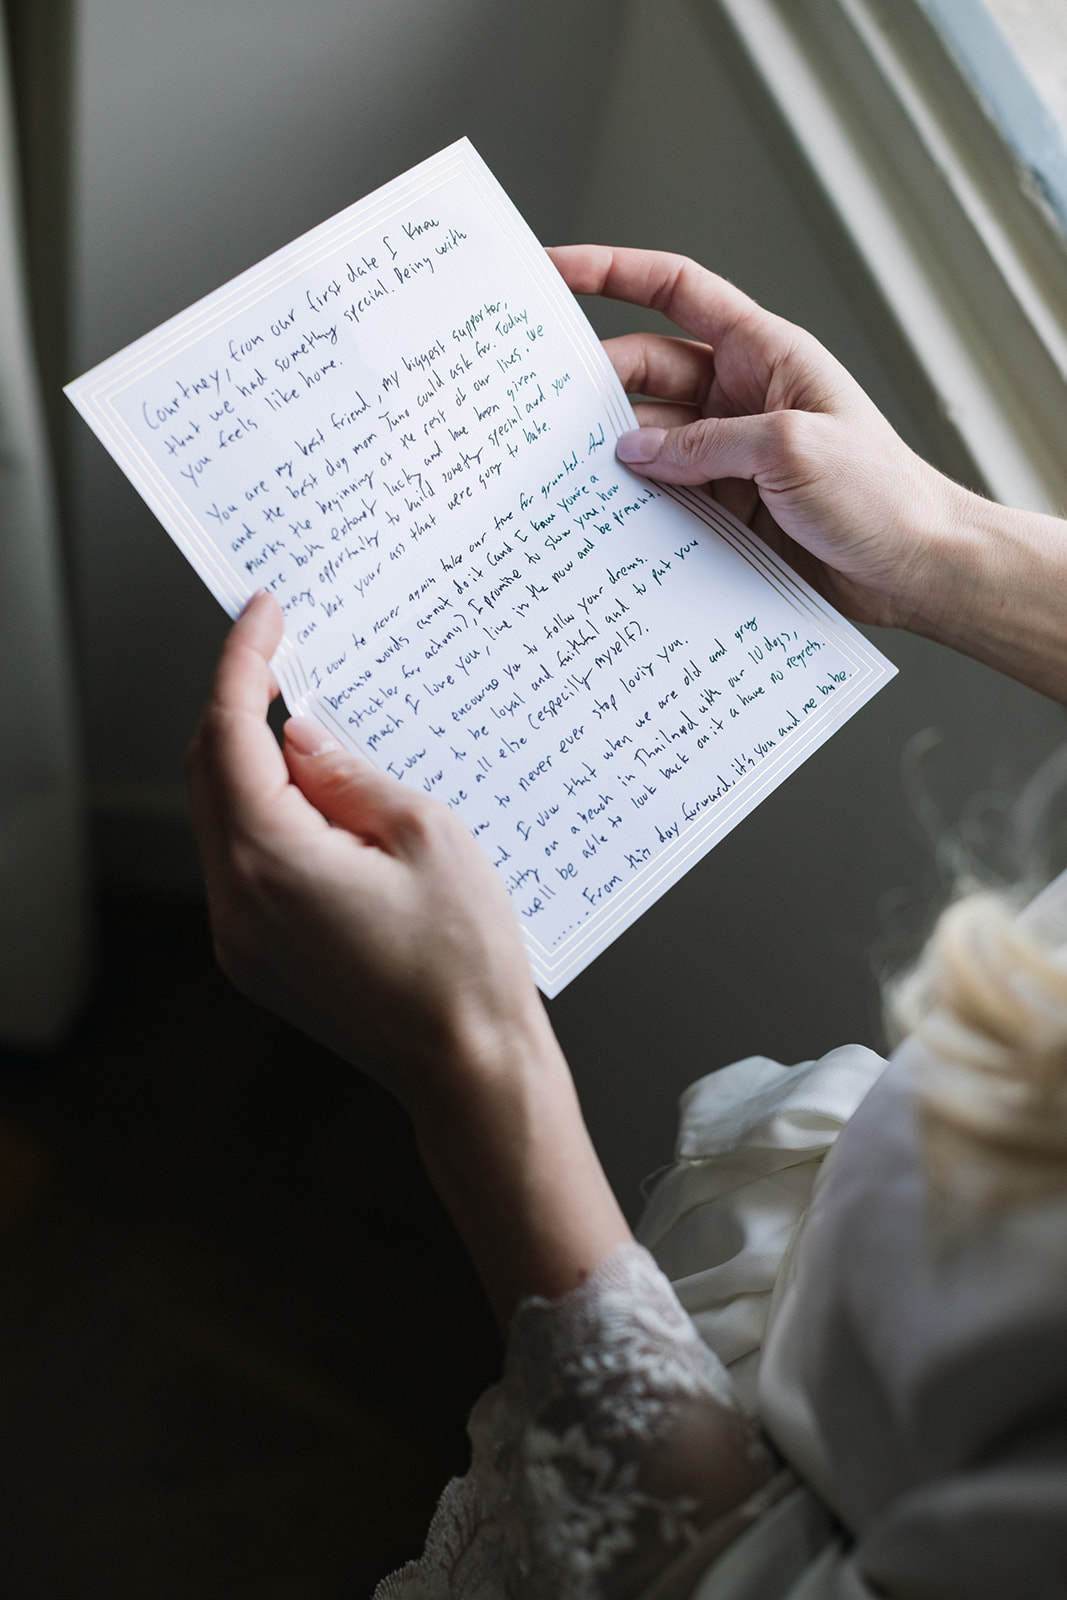 Courtney, from our first date I knew
that we had something special. Being with
you feels like home.
You are my best friend, my biggest supporter,
and the best dog mom Juno could ask for. Today
marks the beginning of the rest of our lives. We
are both extremely lucky and have been given
every opportunity to build something special and you
can bet your ass that were going to babe.
I vow to never again take our time for granted. And
because words cannot do it (and I know you're a
stickler for actions), I promise to show you, how
much I love you, live in the now and be present.
I vow to encourage you to follow your dreams.
vow to be loyal and faithful and to put you
ove all else (especially myself).
ow to never ever stop loving you.
nd I vow that when we are old and gray
sitting on a beach in Thailand with our 10 dogs,
we'll be able to look back on it a have no regrets.
...... From this day forward, it's you and me babe.